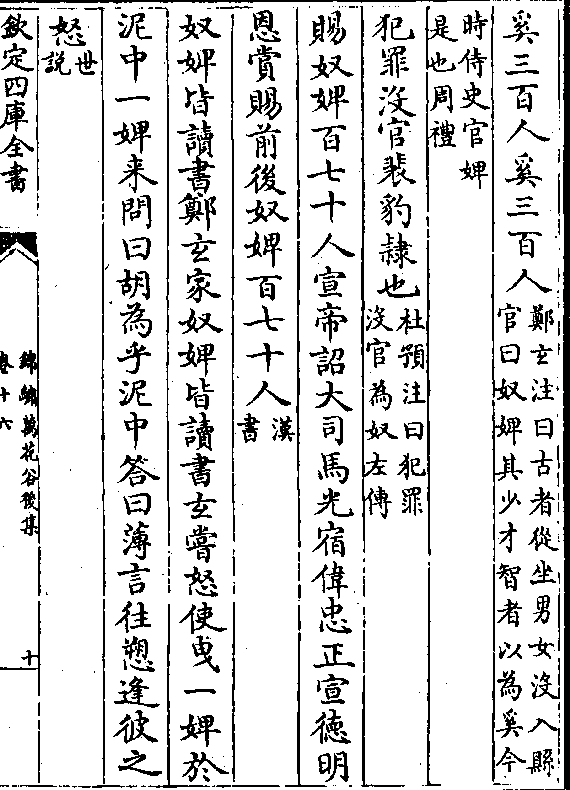 奚三百人奚三百人
鄭玄注曰古者從坐男女沒入縣
官曰奴婢其少才智者以為奚今
時侍史官婢
是也周禮
犯罪沒官裴豹隷也
杜預注曰犯罪
沒官為奴左傳
賜奴婢百七十人宣帝詔大司馬光宿偉忠正宣徳明
恩賞賜前後奴婢百七十人
漢
書
奴婢皆讀書鄭玄家奴婢皆讀書玄嘗怒使曵一婢於
泥中一婢来問曰胡為乎泥中答曰薄言往愬逢彼之
怒
世
説
欽定四庫全書
錦繡萬花谷後集
卷十六
十